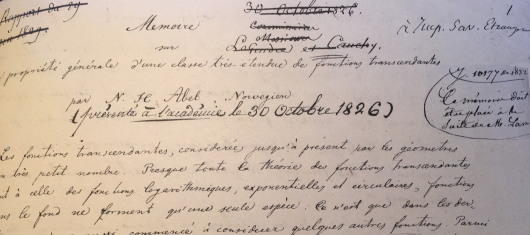 Rapport du 29
Juin 1829.
30 Octobre 1826.
Commissaires
Messieurs
Legendre et Cauchy.
à Imp. Sav. Etrangers
1
Memoire
sur
propriété générale d'une classe très-étendue de fonctions transcendantes
par N. H. Abel Norvegien
(présenté à l'académie le 30 Octobre 1826)
Ce mémoire doit
être placé à la
suite de
Les fonctions transcendantes, considérées jusqu'à présent par les géomètres
très petit nombre. Presque toute la théorie des fonctions transcendantes
à celle des fonctions logarithmiques, exponentielles et circulaires, fonctions
le fond ne forment qu'une seule espèce. Ce n'est que dans les der
commencé à considérer quelques autres fonctions. Parmi